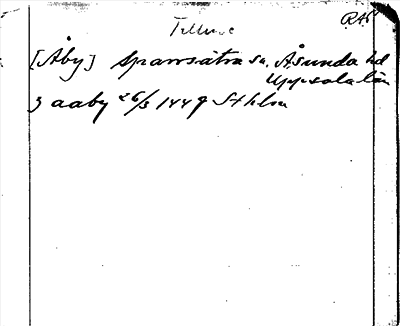 R45
[Åby] Sparrsätra sn. Åsunda hd
Uppsala län
3 aaby 26/3 1449 Sthlm